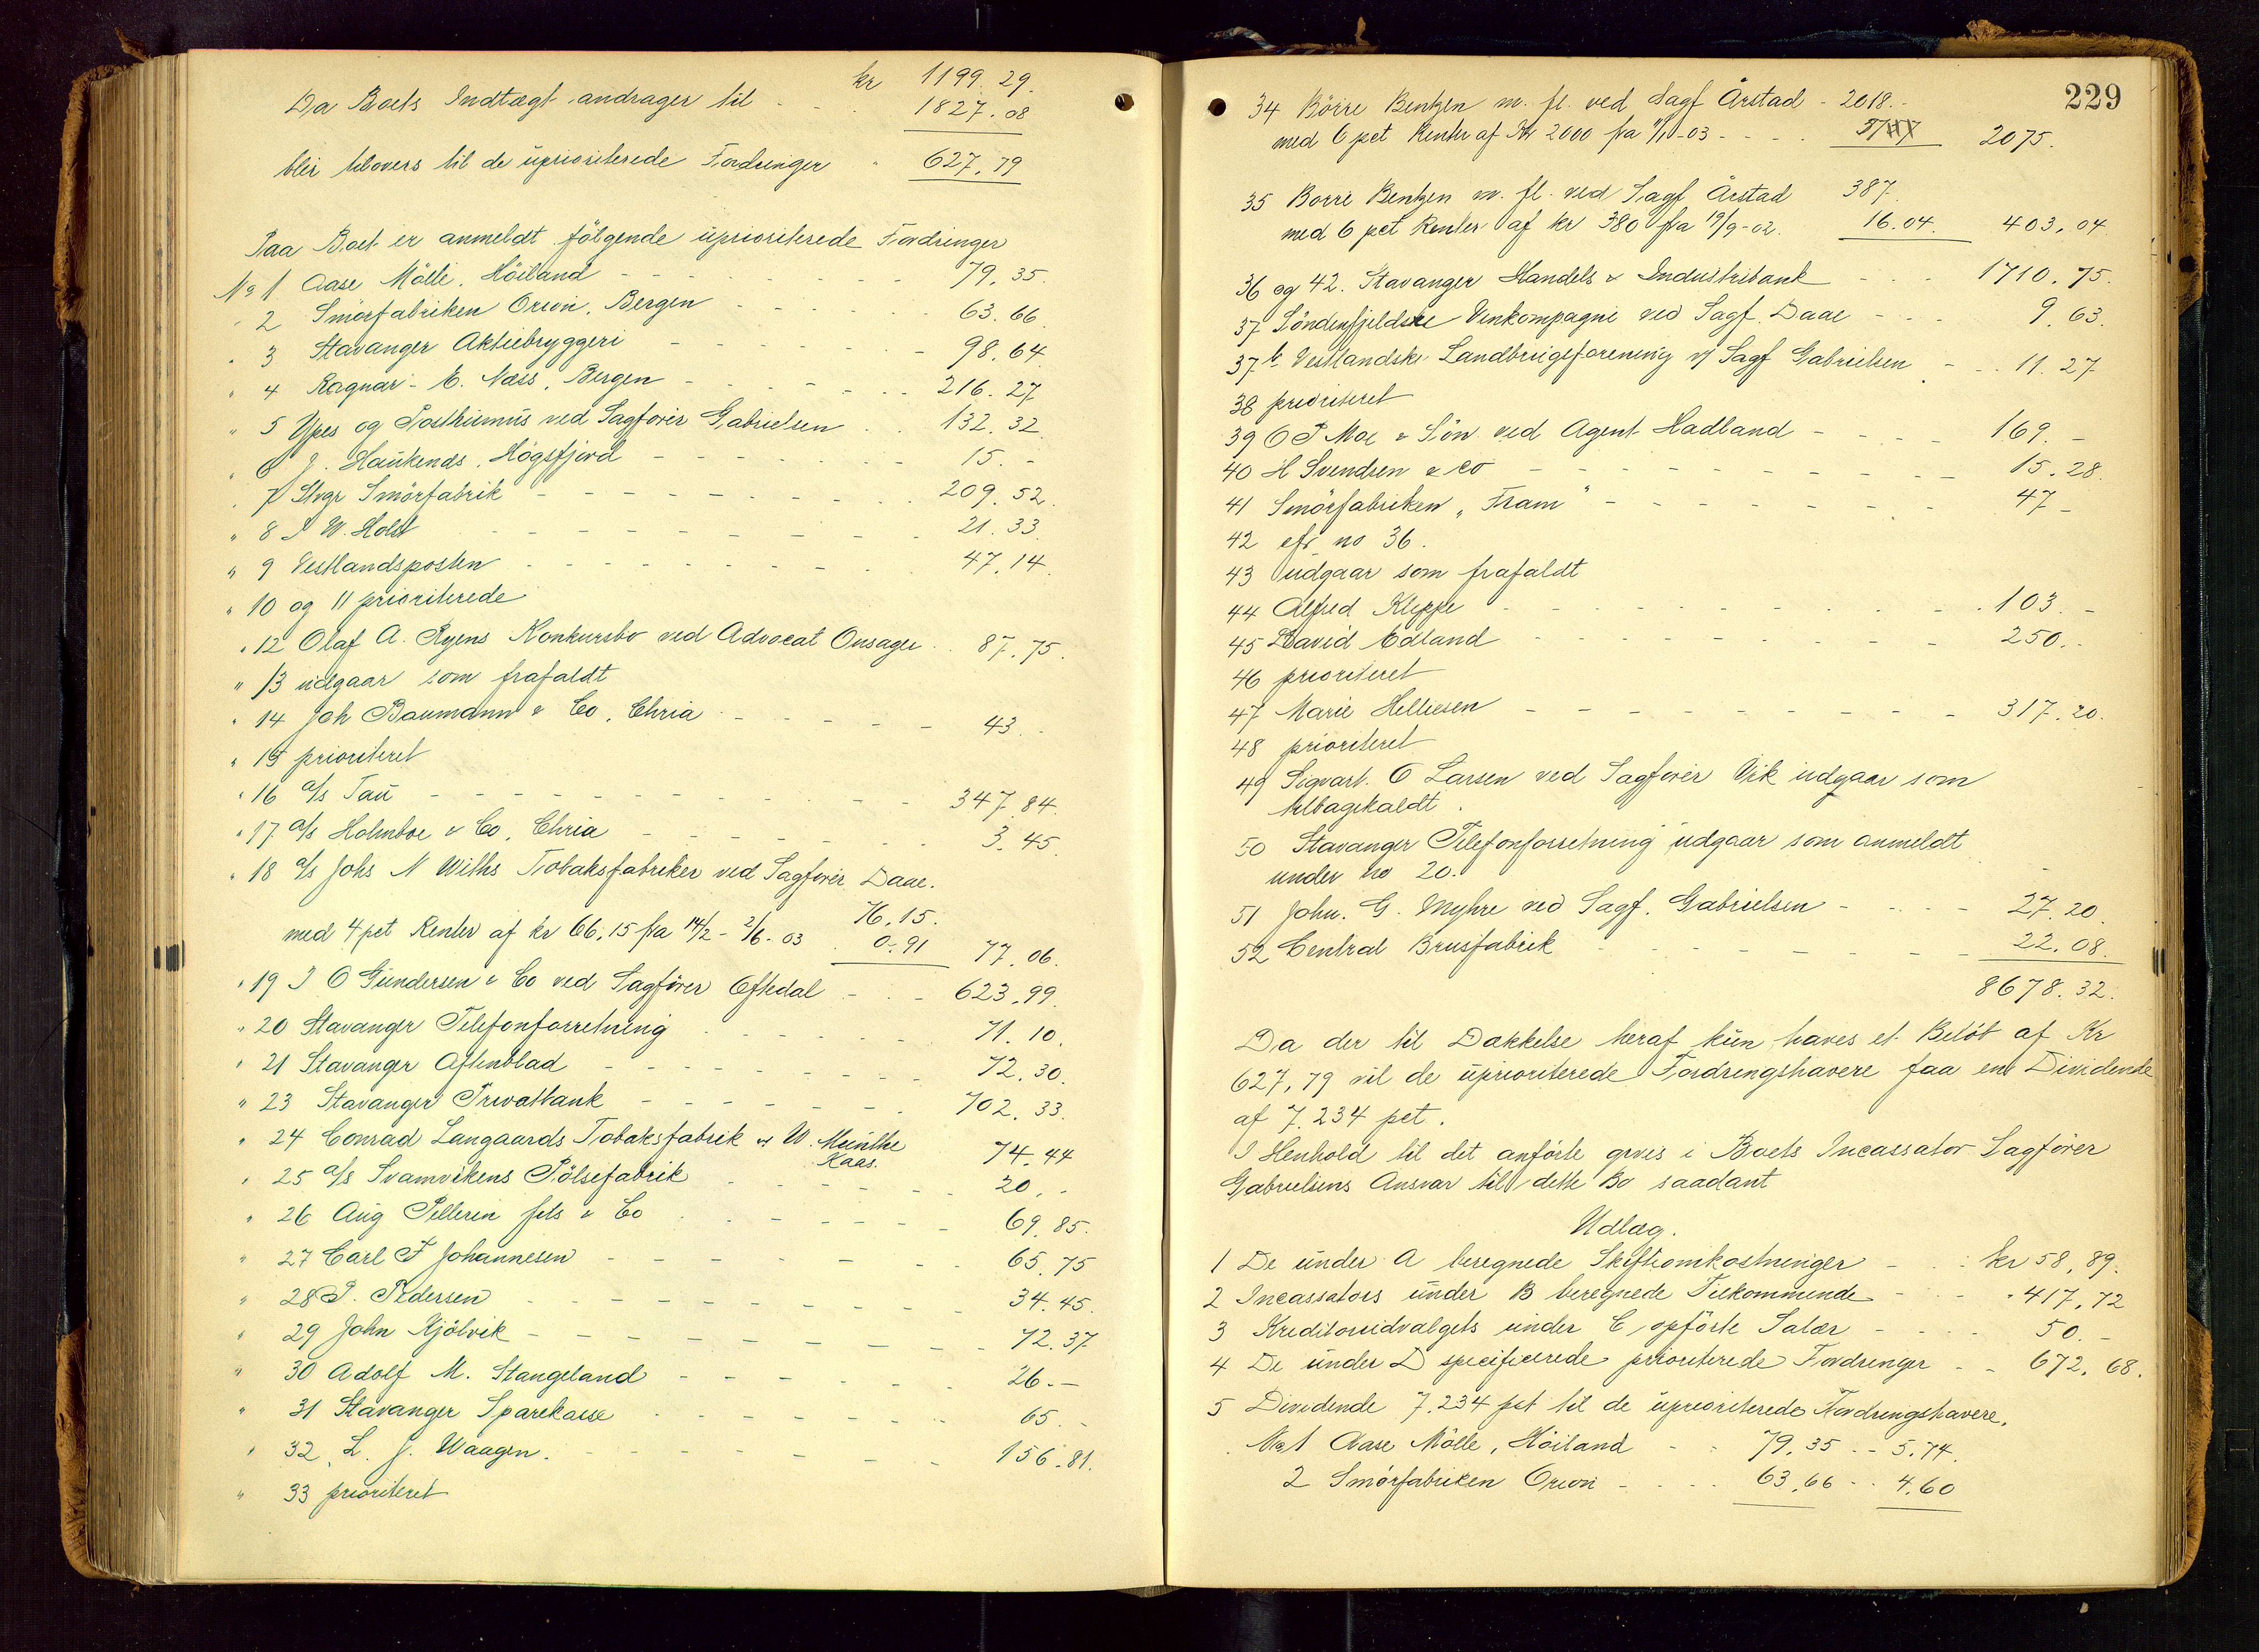 kr 1199.29.
Da Boets Indtægt andrager til - - 1827.08
blir tilovers til de uprioriterede Fordringer " 627.79
Paa Boet er anmeldt følgende uprioriterede Fordringer
No 1 Aase Mølle, Høiland - - - - 79.35.
" 2 Smørfabriken Orion, Bergen - - - - 63.66
" 3 Stavanger Aktiebryggeri - - - - 98.64
" 4 Ragnar E. Næss, Bergen - - - - 216.27
" 5 Ypes og Posthumus ved Sagfører Gabrielsen - - 132.32
" 6 J. Haukends, Høgsfjord - - - - 15.-
" 7 Stvgr Smørfabrik - - - - 209.52.
" 8 P W. Holst - - - - 21.33.
" 9 Vestlandsposten - - - - 47.14.
" 10 og 11 prioriterede
" 12 Olaf A. Ryens Konkursbo ved Advocat Onsager - - 87.75.
" 13 udgaar som frafaldt
" 14 Joh Baumann & Co, Chria - - - - 43.-
" 15 prioriteret
" 16 a/s Tau - - - - 347.84.
" 17 a/s Holmboe & Co, Chria - - - - 3.45.
" 18 a/s Johs N Wilhs Tobaksfabriker ved Sagfører Daae.
76.15.
med 4 pct Renter af kr 66,15 fra 14/2 - 2/6-03 . 0.91 77.06.
" 19 I O Gundersen & Co ved Sagfører Oftedal - - - 623.99.
" 20 Stavanger Telefonforretning - - - - 71.10.
" 21 Stavanger Aftenblad - - - - 72.30.
" 23 Stavanger Privatbank - - - - 702.33.
" 24 Conrad Langaards Tobaksfabrik v/ W. Münthe 74.44
Kaas.
" 25 a/s Svamvikens Pølsefabrik - - - - 20.-
" 26 Aug Pellerin fils & Co - - - - 69.85.
" 27 Carl F Johannesen - - - - 65.75
" 28 P. Pedersen - - - - 34.45.
" 29 John Kjølvik - - - - 72.37
" 30 Adolf M. Stangeland - - - - 26.-
" 31 Stavanger Sparekasse - - - - 65.-
" 32 L. J. Waagen. - - - - 156.81.
" 33 prioriteret
229
34 Børre Bentzen m. fl. ved Sagf Årstad - 2018.-
med 6 pct Renter af Kr 2000 fra 11/11-03 - - - 2075.
35 Borre Bentzen m. fl. ved Sagf Årstad 387.
med 6 pct Renter af kr 380 fra 19/9-02. 16.04. 403,04
36 og 42. Stavanger Handels & Industribank - - - 1710.75.
37 Søndenfjeldske Venkompagni ved Sagf. Daae - - - 9.63.
37 b Vestlandske Landbrugsforening v/ Sagf Gabrielsen - - 11.27
38 prioriteret
39 O P Moe & Søn ved Agent Hadland - - - - 169.-
40 H Svendsen & Co - - - - 15.28.
41 Smørfabriken „Fram" - - - - 47.-
42 cfr no 36.
43 udgaar som frafaldt
44 Alfred Kleppe - - - - 103.-
45 David Edland - - - - 250.-
46 prioriteret
47 Marie Helliesen - - - - 317.20.
48 prioriteret
49 Sigvart. O Larsen ved Sagfører Vik udgaar som
tilbagekaldt.
50 Stavanger Telefonforretning udgaar som anmeldt
under no 20.
51 John. G. Myhre ved Sagf. Gabrielsen - - - 27.20.
52 Central Brusfabrik - - - - 22.08.
8678.32.
Da der til Dækkelse heraf kun haves et Beløb af Kr
627,79 vil de uprioriterede Fordringshavere faa en Dividende
af 7.234 pct.
I Henhold til det anførte gives i Boets Incassator Sagfører
Gabrielsens Ansvar til dette Bo saadant
Udlæg.
1 De under A beregnede Skifteomkostninger - - kr 58,89.
2 Incassators under B beregnede Tilkommende - - " 417,72
3 Kreditorudvalgets under C opførte Salær - - - 50.-
4 De under D specificerede prioriterede Fordringer - - 672,68.
5 Dividende 7.234 pct til de uprioriterede Fordringshavere.
No 1 Aase Mølle, Høiland - - 79.35 - - 5.74.
2 Smørfabriken Orion - - - 63.66 - - 4.60